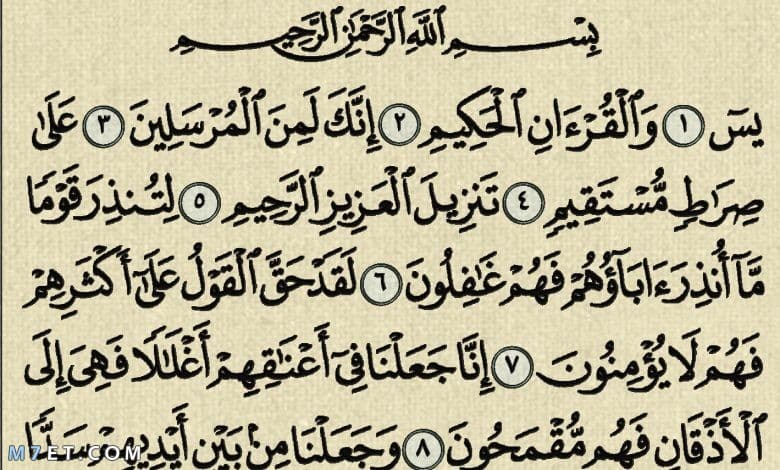 بِسْمِ ٱللَّهِ ٱلرَّحْمَٰنِ ٱلرَّحِيمِ
يسٓ ١ وَٱلْقُرْءَانِ ٱلْحَكِيمِ ٢ إِنَّكَ لَمِنَ ٱلْمُرْسَلِينَ ٣ عَلَىٰ
صِرَٰطٍ مُّسْتَقِيمٍ ٤ تَنزِيلَ ٱلْعَزِيزِ ٱلرَّحِيمِ ٥ لِتُنذِرَ قَوْمًا
مَّآ أُنذِرَ ءَابَآؤُهُمْ فَهُمْ غَٰفِلُونَ ٦ لَقَدْ حَقَّ ٱلْقَوْلُ عَلَىٰٓ أَكْثَرِهِمْ
فَهُمْ لَا يُؤْمِنُونَ ٧ إِنَّا جَعَلْنَا فِىٓ أَعْنَٰقِهِمْ أَغْلَٰلًا فَهِىَ إِلَى
ٱلْأَذْقَانِ فَهُم مُّقْمَحُونَ ٨ وَجَعَلْنَا مِنۢ بَيْنِ أَيْدِيهِمْ سَدًّا
M7ET.COM